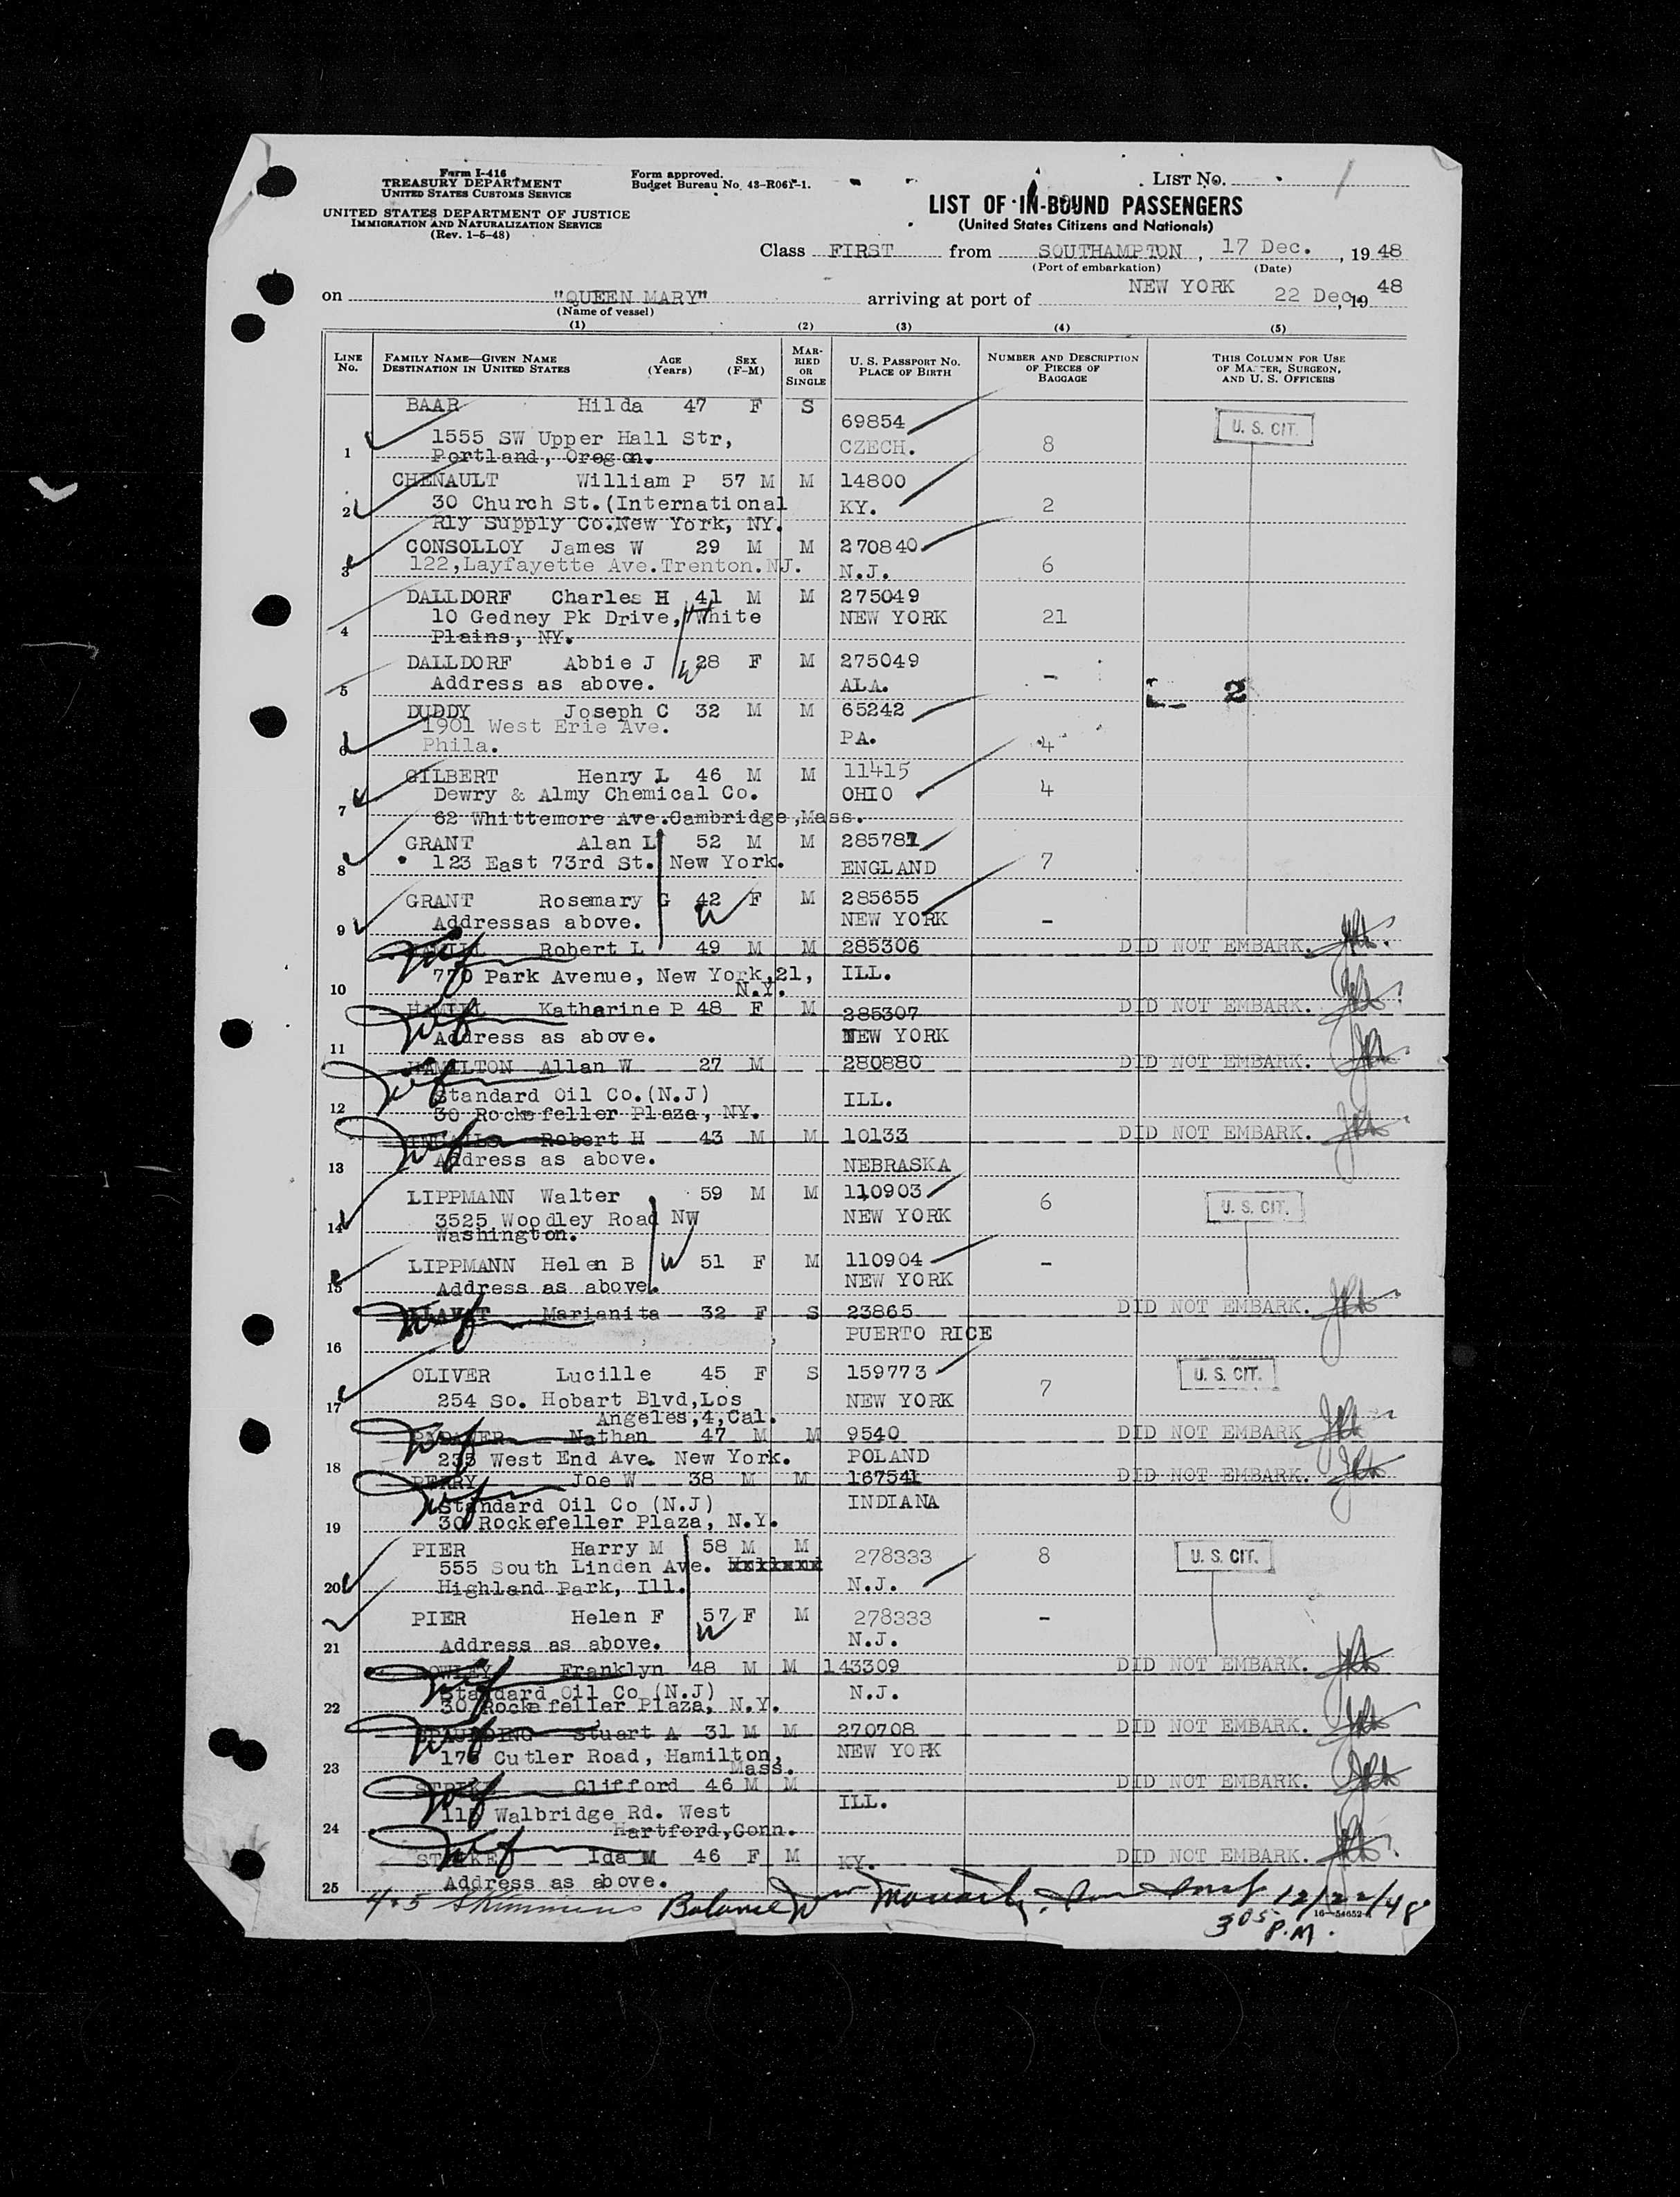 Form I-416
TREASURY DEPARTMENT
UNITED STATES CUSTOMS SERVICE
UNITED STATES DEPARTMENT OF JUSTICE
IMMIGRATION AND NATURALIZATION SERVICE
(Rev. 1-5-48)
Form approved.
Budget Bureau No. 43-R061-1.
LIST NO. 1
LIST OF IN-BOUND PASSENGERS
(United States Citizens and Nationals)
Class FIRST from SOUTHAMPTON, 17 Dec., 1948
(Port of embarkation) (Date)
on "QUEEN MARY" arriving at port of NEW YORK 22 Dec. 1948
(Name of vessel)
(1) (2) (3) (4) (5)
LINE No. FAMILY NAME—GIVEN NAME DESTINATION IN UNITED STATES AGE (Years) SEX (F-M) MARRIED OR SINGLE U. S. PASSPORT NO. PLACE OF BIRTH NUMBER AND DESCRIPTION OF PIECES OF BAGGAGE THIS COLUMN FOR USE OF MASTER, SURGEON, AND U. S. OFFICERS
BAAR Hilda 47 F S 69854 U. S. CIT.
1555 SW Upper Hall Str, CZECH. 8
1 Portland, Oregon.
CHENAULT William P 57 M M 14800
30 Church St.(International KY. 2
2 Rly Supply Co.New York, NY.
CONSOLLOY James W 29 M M 270840
3 122,Layfayette Ave.Trenton.NJ. N.J. 6
DALLDORF Charles H 41 M M 275049
10 Gedney Pk Drive, White NEW YORK 21
4 Plains, NY.
DALLDORF Abbie J W 28 F M 275049 -
5 Address as above. ALA. 2
DUDDY Joseph C 32 M M 65242
1901 West Erie Ave. PA. 4
6 Phila.
GILBERT Henry L 46 M M 11415
Dewry & Almy Chemical Co. OHIO 4
7 62 Whittemore Ave.Cambridge,Mass.
GRANT Alan L 52 M M 285781
8 123 East 73rd St. New York. ENGLAND 7
GRANT Rosemary G 42 F M 285655
9 Addressas above. W NEW YORK -
Robert L 49 M M 285306 DID NOT EMBARK.
770 Park Avenue, New York,21, ILL.
10 N.Y.
HAMILL Katharine P 48 F M 285307 DID NOT EMBARK.
11 Address as above. NEW YORK
HAMILTON Allan W 27 M 280880 DID NOT EMBARK.
Standard Oil Co.(N.J) ILL.
12 30 Rockefeller Plaza, NY.
Robert H 43 M M 10133 DID NOT EMBARK.
13 Address as above. NEBRASKA
LIPPMANN Walter 59 M M 110903 6 U. S. CIT.
14 3525 Woodley Road NW NEW YORK
Washington.
LIPPMANN Helen B W 51 F M 110904 -
15 Address as above. NEW YORK
Marianita 32 F S 23865 DID NOT EMBARK.
16 PUERTO RICE
OLIVER Lucille 45 F S 159773 U. S. CIT.
17 254 So. Hobart Blvd,Los NEW YORK 7
Angeles,4,Cal.
Nathan 47 M M 9540 DID NOT EMBARK
18 235 West End Ave. New York. POLAND
PERRY Joe W 38 M M 167541 DID NOT EMBARK.
Standard Oil Co (N.J) INDIANA
19 30 Rockefeller Plaza, N.Y.
PIER Harry M 58 M M 278333 8 U. S. CIT.
555 South Linden Ave.
20 Highland Park, Ill. N.J.
PIER Helen F 57 F M 278333 -
21 Address as above. W N.J.
Franklyn 48 M M 143309 DID NOT EMBARK.
Standard Oil Co (N.J) N.J.
22 30 Rockefeller Plaza, N.Y.
Stuart A 31 M M 270708 DID NOT EMBARK.
176 Cutler Road, Hamilton, NEW YORK
23 Mass.
STRIKE Clifford 46 M M DID NOT EMBARK.
Walbridge Rd. West ILL.
24 Hartford,Conn.
STRIKE Ida M 46 F M KY. DID NOT EMBARK.
25 Address as above.
4+5 Skimmens Balance 12/22/48
16—54652-1
3 05 P.M.